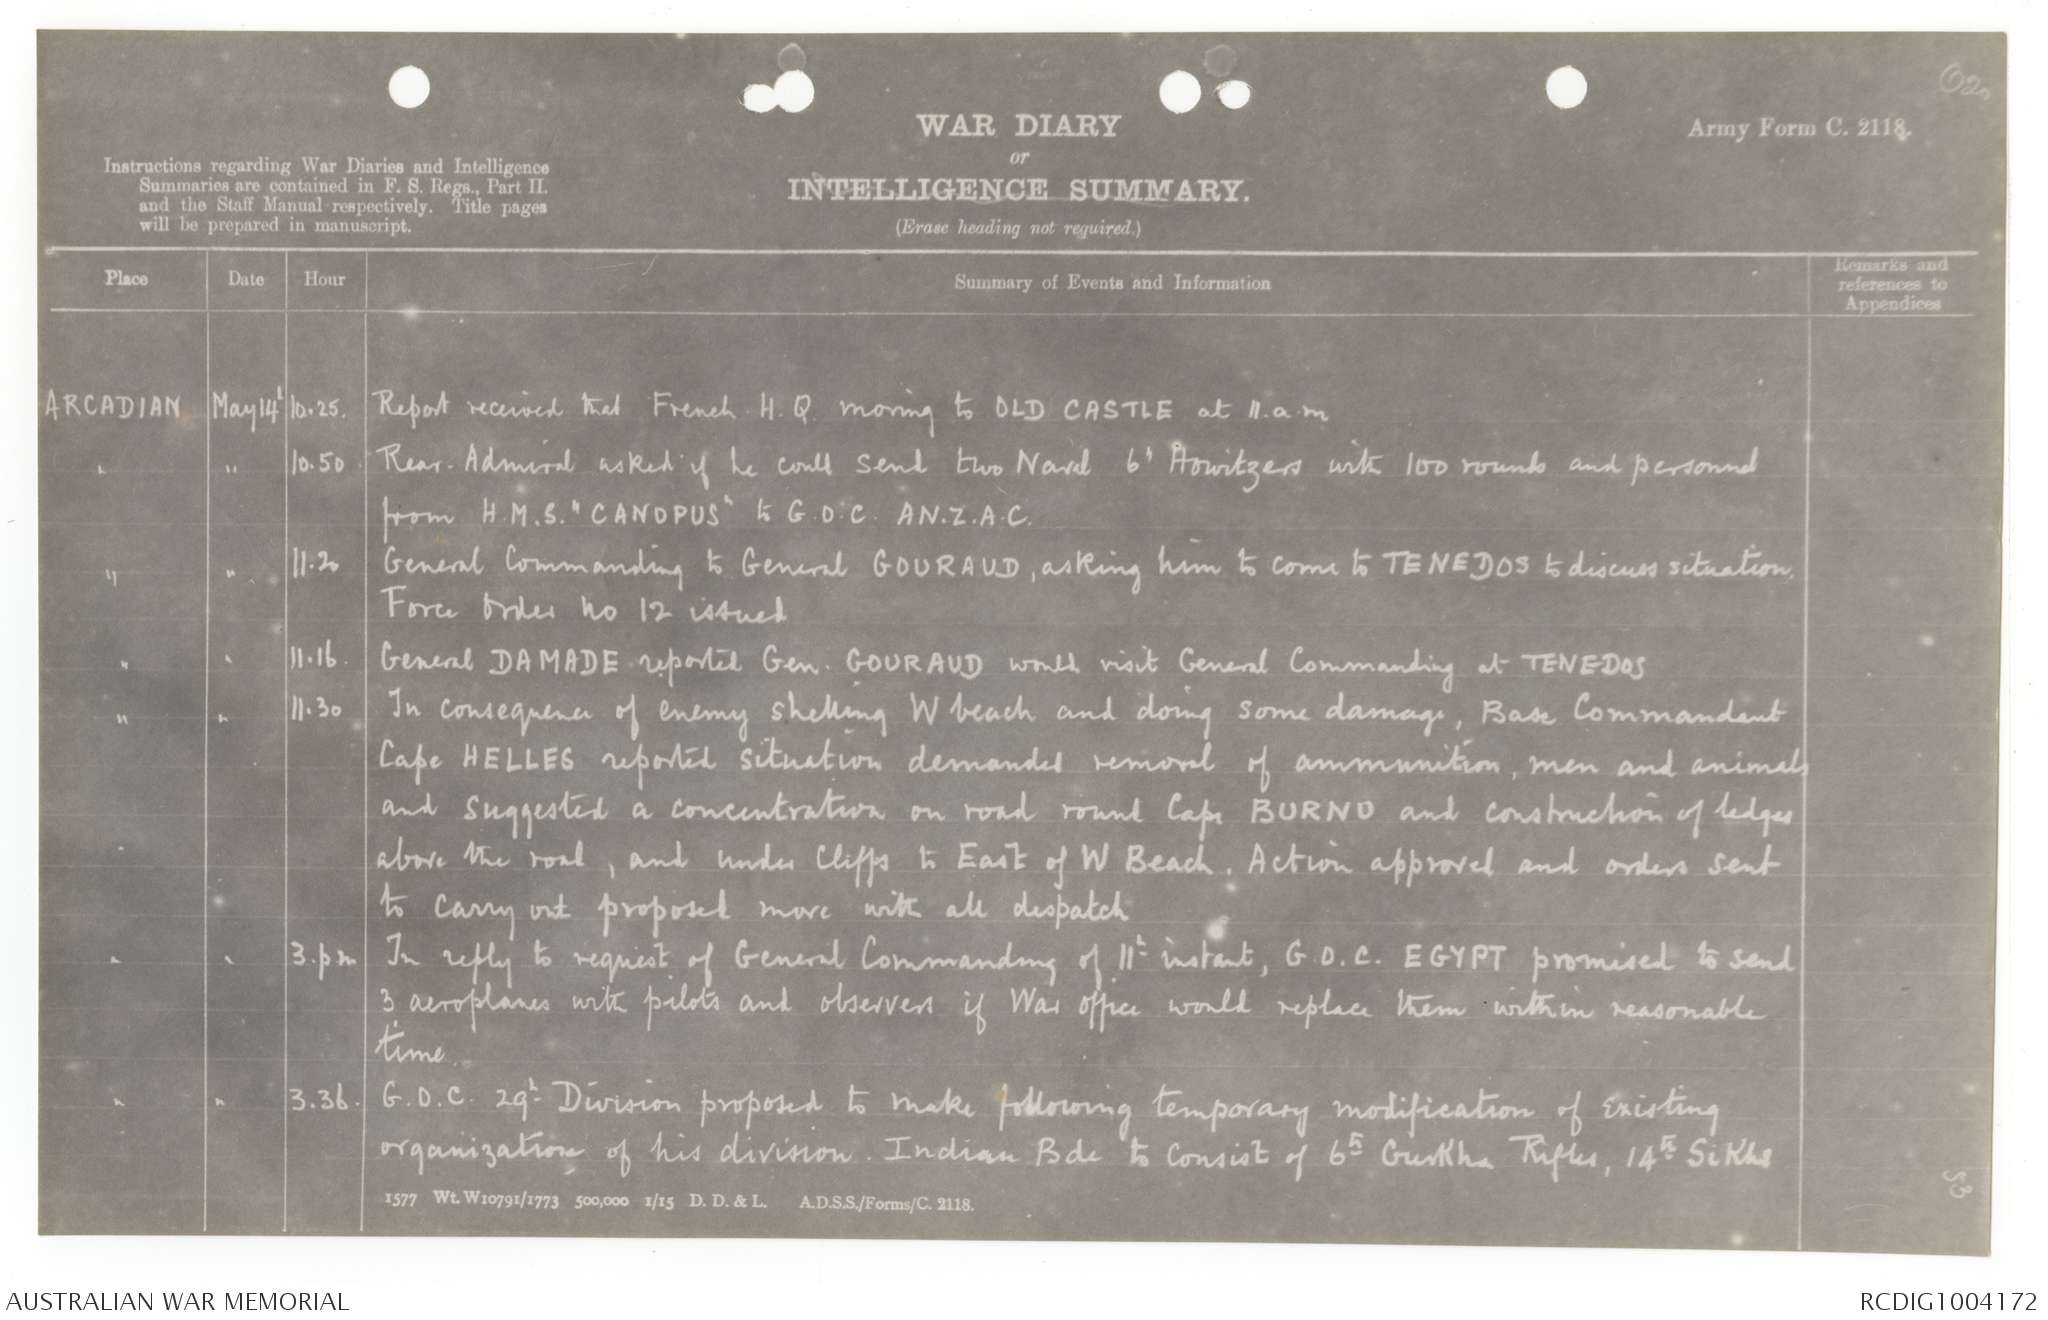 62.
WAR DIARY
or
INTELLIGENCE SUMMARY.
(Erase heading not required.)
Army Form C. 2118.
Instructions regarding War Diaries and Intelligence
Summaries are contained in F. S. Regs., Part II.
and the Staff Manual respectively. Title pages
will be prepared in manuscript.
Place Date Hour Summary of Events and Information Remarks and
references to
Appendices
ARCADIAN May 14th 10.25. Report received that French H.Q. moving to OLD CASTLE at 11.a.m
" " 10.50. Rear-Admiral asked if he could send two Naval 6" Howitzers with 100 rounds and personnel
from H.M.S. "CANOPUS" to G.O.C. A.N.Z.A.C.
" " 11.20 General Commanding to General GOURAUD, asking him to come to TENEDOS to discuss situation.
Force Order No 12 issued
" " 11.16. General DAMADE reported Gen. GOURAUD would visit General Commanding at TENEDOS
" " 11.30 In consequence of enemy shelling W beach and doing some damage, Base Commandant
Cape HELLES reported situation demanded removal of ammunition, men and animals
and suggested a concentration on road round Cape BURNO and construction of ledges
above the road, and under Cliffs to East of W Beach. Action approved and orders sent
to carry out proposed move with all despatch
" " 3.pm In reply to request of General Commanding of 11th instant, G.O.C. EGYPT promised to send
3 aeroplanes with pilots and observers if War office would replace them within reasonable
time.
" " 3.36. G.O.C. 29th Division proposed to make following temporary modification of existing
organization of his division. Indian Bde to consist of 6th Gurkha Rifles, 14th Sikhs
1577 Wt. W10791/1773 500,000 1/15 D. D. & L. A.D.S.S./Forms/C. 2118.
53
AUSTRALIAN WAR MEMORIAL
RCDIG1004172